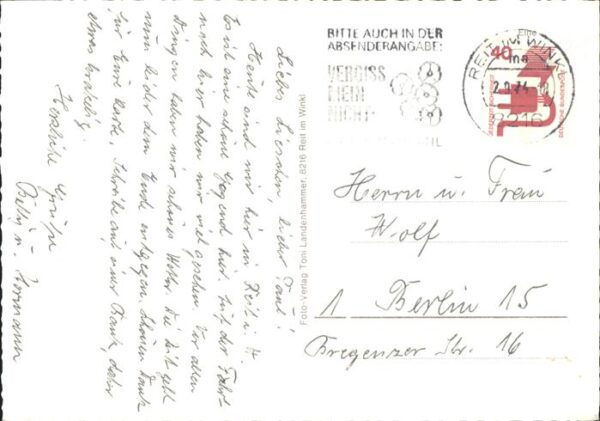 Liebes Lierchen, lieber Paul!
Heute sind wir hier in Reit i. W.
Es ist eine schöne Gegend hier. Auf der Fahrt
nach hier haben wir viel gesehen. Vor allen
Dingen haben wir schönes Wetter. Die Zeit geht
nun leider dem Ende entgegen. Schönen Dank
für Eure Karte, schreibe auf einer Bank, daher
etwas krakelig.
Herzliche Grüße
Betty u. Hermann
Foto-Verlag Toni Landenhammer, 8216 Reit im Winkl
BITTE AUCH IN DER
ABSENDERANGABE:
VERGISS
MEIN
NICHT
REIT IM WINKL
2.9.74
8216
40
DEUTSCHE BUNDESPOST
Herrn u. Frau
Wolf
1 Berlin 15
Bregenzer Str. 16